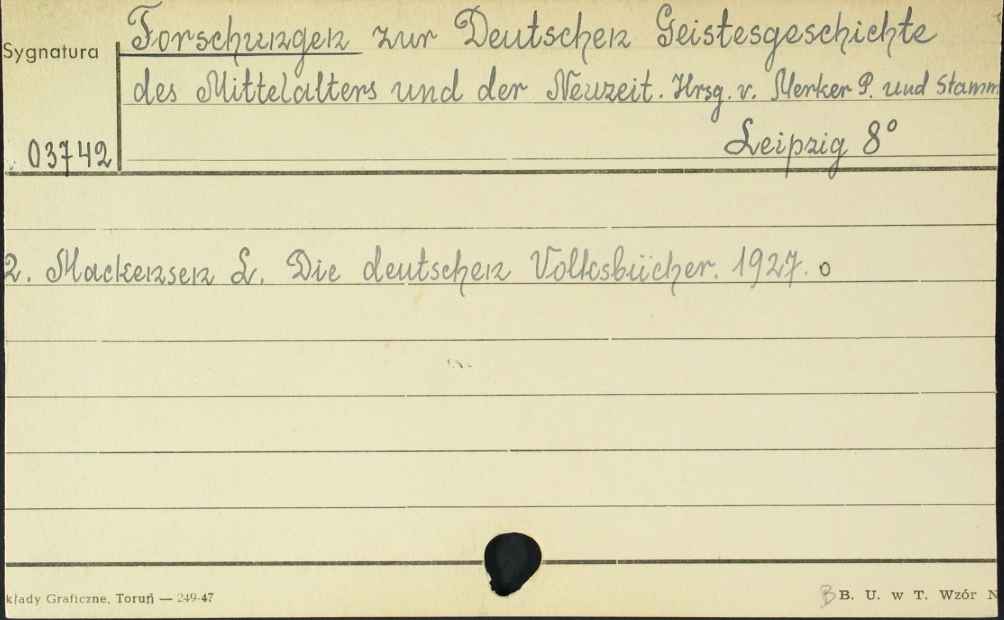 Sygnatura
Forschungen zur Deutschen Geistesgeschichte
des Mittelalters und der Neuzeit. Hrsg. v. Merker P. und Stamm
03742
Leipzig 8°
2. Mackensen L. Die deutschen Volksbücher. 1927. o
kłady Graficzne, Toruń — 249-47
B B. U. w T. Wzór N